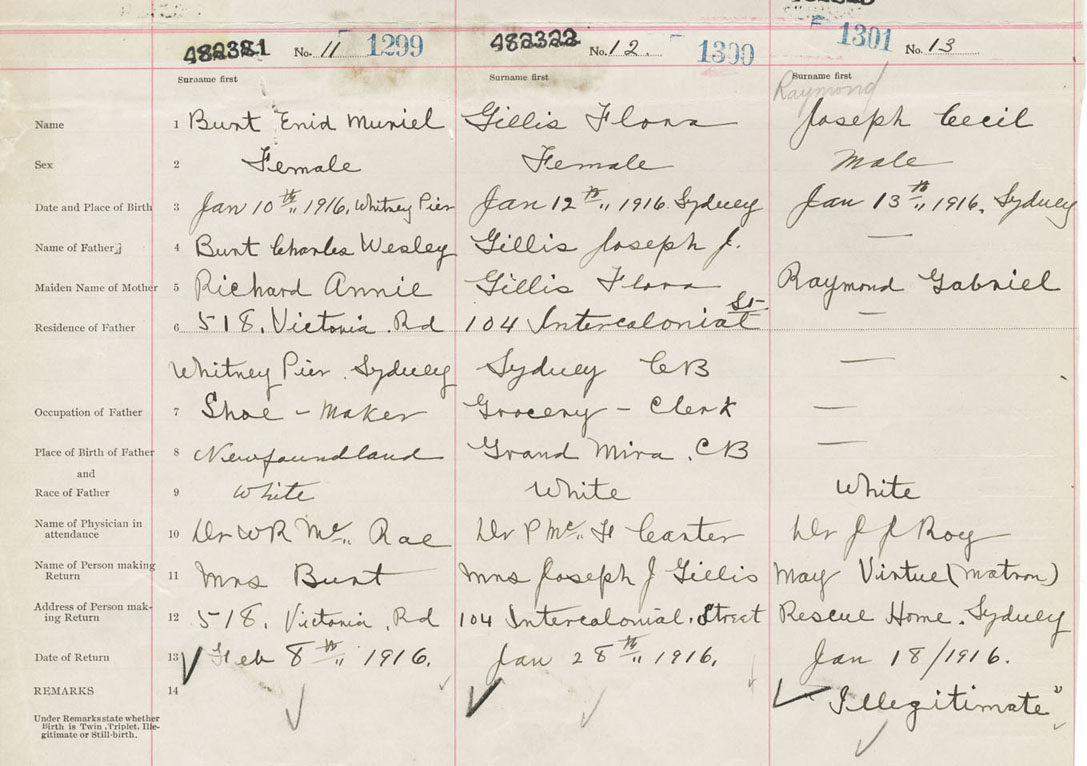 482381 No. 11 1299 482322 No. 12. 1300 1301 No. 13
Surname first Surname first Surname first
Raymond
Name 1 Burt Enid Muriel Gillis Flora Joseph Cecil
Sex 2 Female Female Male
Date and Place of Birth 3 Jan 10th,, 1916, Whitney Pier Jan 12th,, 1916. Sydney Jan 13th,, 1916. Sydney
Name of Father 4 Burt Charles Wesley Gillis Joseph J. —
Maiden Name of Mother 5 Richard Annie Gillis Flora Raymond Gabriel
Residence of Father 6 518, Victoria Rd 104 Intercolonial St —
Whitney Pier. Sydney Sydney CB —
Occupation of Father 7 Shoe - Maker Grocery - Clerk —
Place of Birth of Father 8 Newfoundland Grand Mira, CB —
and
Race of Father 9 White White White
Name of Physician in
attendance 10 Dr W R Mc,, Rae Dr P Mc,, F Carter Dr J J Roy
Name of Person making
Return 11 Mrs Burt Mrs Joseph J Gillis May Virtue (Matron)
Address of Person mak-
ing Return 12 518, Victoria, Rd 104 Intercolonial, Street Rescue Home. Sydney
Date of Return 13 Feb 8th,, 1916. Jan 28th,, 1916. Jan 18/1916.
REMARKS 14 "Illegitimate"
Under Remarks state whether
Birth is Twin, Triplet, Ille-
gitimate or Still-birth.